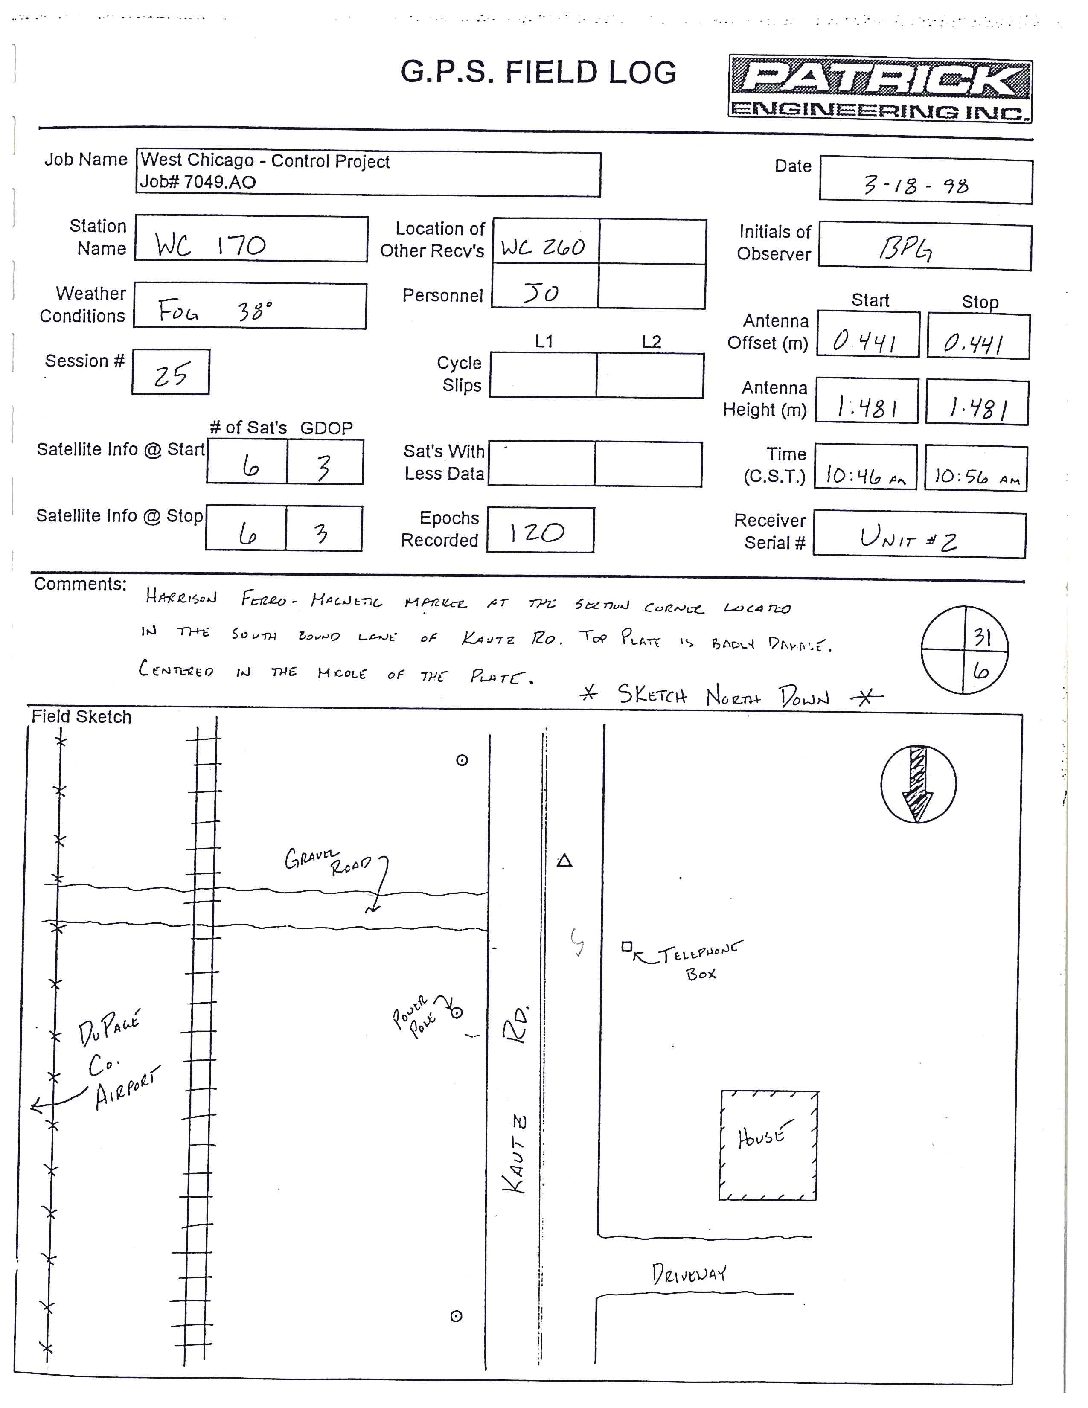 G.P.S. FIELD LOG
PATRICK
ENGINEERING INC.
Job Name West Chicago - Control Project
Job# 7049.AO
Date 3-18-98
Station Name WC 170
Location of Other Recv's WC 260
Initials of Observer BPG
Weather Conditions FOG 38°
Personnel JO
Start Stop
Antenna Offset (m) 0.441 0.441
Session # 25
L1 L2
Cycle Slips
Antenna Height (m) 1.481 1.481
# of Sat's GDOP
Satellite Info @ Start 6 3
Sat's With Less Data
Time (C.S.T.) 10:46 AM 10:56 AM
Satellite Info @ Stop 6 3
Epochs Recorded 120
Receiver Serial # UNIT #2
Comments: HARRISON FERRO-MAGNETIC MARKER AT THE SECTION CORNER LOCATED
IN THE SOUTH BOUND LANE OF KAUTZ RD. TOP PLATE IS BADLY
CENTERED IN THE MIDDLE OF THE PLATE.
* SKETCH NORTH DOWN *
31
6
Field Sketch
GRAVEL
ROAD
TELEPHONE
BOX
POWER
POLE
DUPAGE
CO.
AIRPORT
KAUTZ RD.
HOUSE
DRIVEWAY